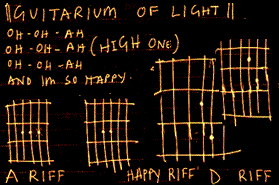 ‖GUITARIUM OF LIGHT‖
OH-OH-AH
OH-OH-AH (HIGH ONE)
OH-OH-AH
AND IM SO HAPPY.
A RIFF HAPPY RIFF D RIFF